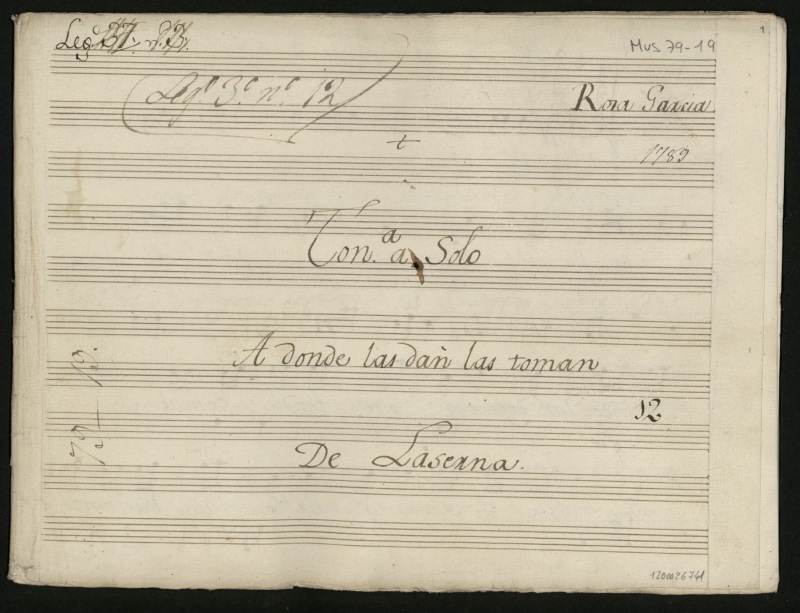 Leg.º 37. n.º 3.
Mus 79-19
Leg.º 3.º n.º 12
Rosa Garcia
1789
Ton.ª a Solo
A donde las dan las toman
12
79-19.
De Laserna.
1200026741
1